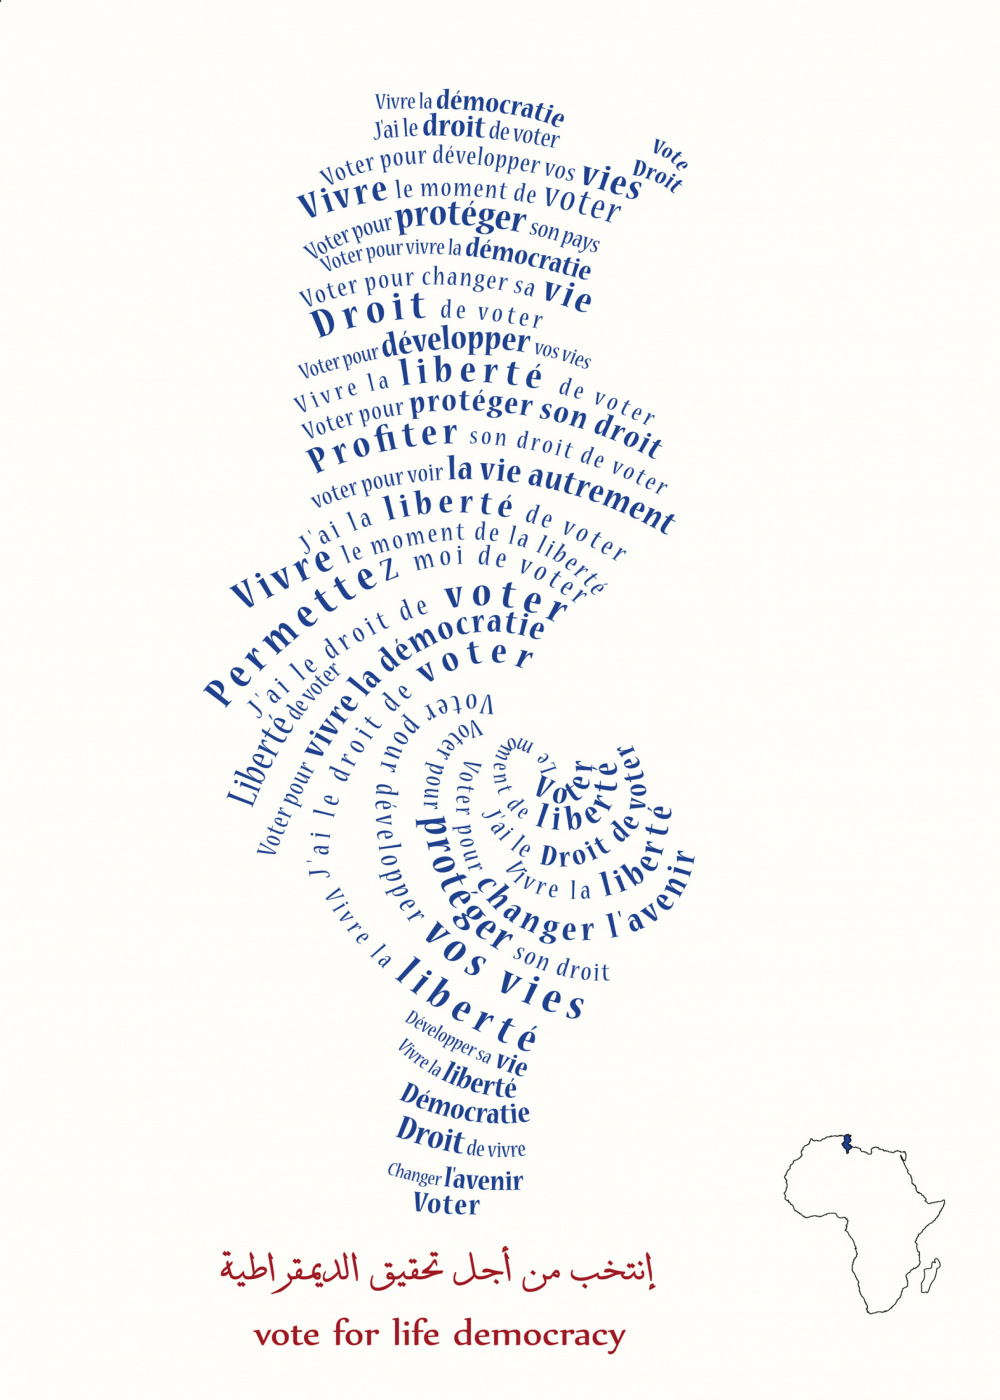 Vivre la démocratie
J'ai le droit de voter
Vote
Droit
Voter pour développer vos vies
Vivre le moment de voter
Voter pour protéger son pays
Voter pour vivre la démocratie
Voter pour changer sa vie
Droit de voter
Voter pour développer vos vies
Vivre la liberté de voter
Voter pour protéger son droit
Profiter son droit de voter
voter pour voir la vie autrement
J'ai la liberté de voter
Vivre le moment de la liberté
Permettez moi de voter
J'ai le droit de voter
Liberté de voter
Voter pour vivre la démocratie
J'ai le droit de voter
Voter pour développer vos vies
Voter pour protéger son droit
Voter pour changer l'avenir
Le moment de voter
Voter
liberté
J'ai le Droit de voter
Vivre la liberté
Vivre la liberté
Développer sa vie
Vivre la liberté
Démocratie
Droit de vivre
Changer l'avenir
Voter
إنتخب من أجل تحقيق الديمقراطية
vote for life democracy